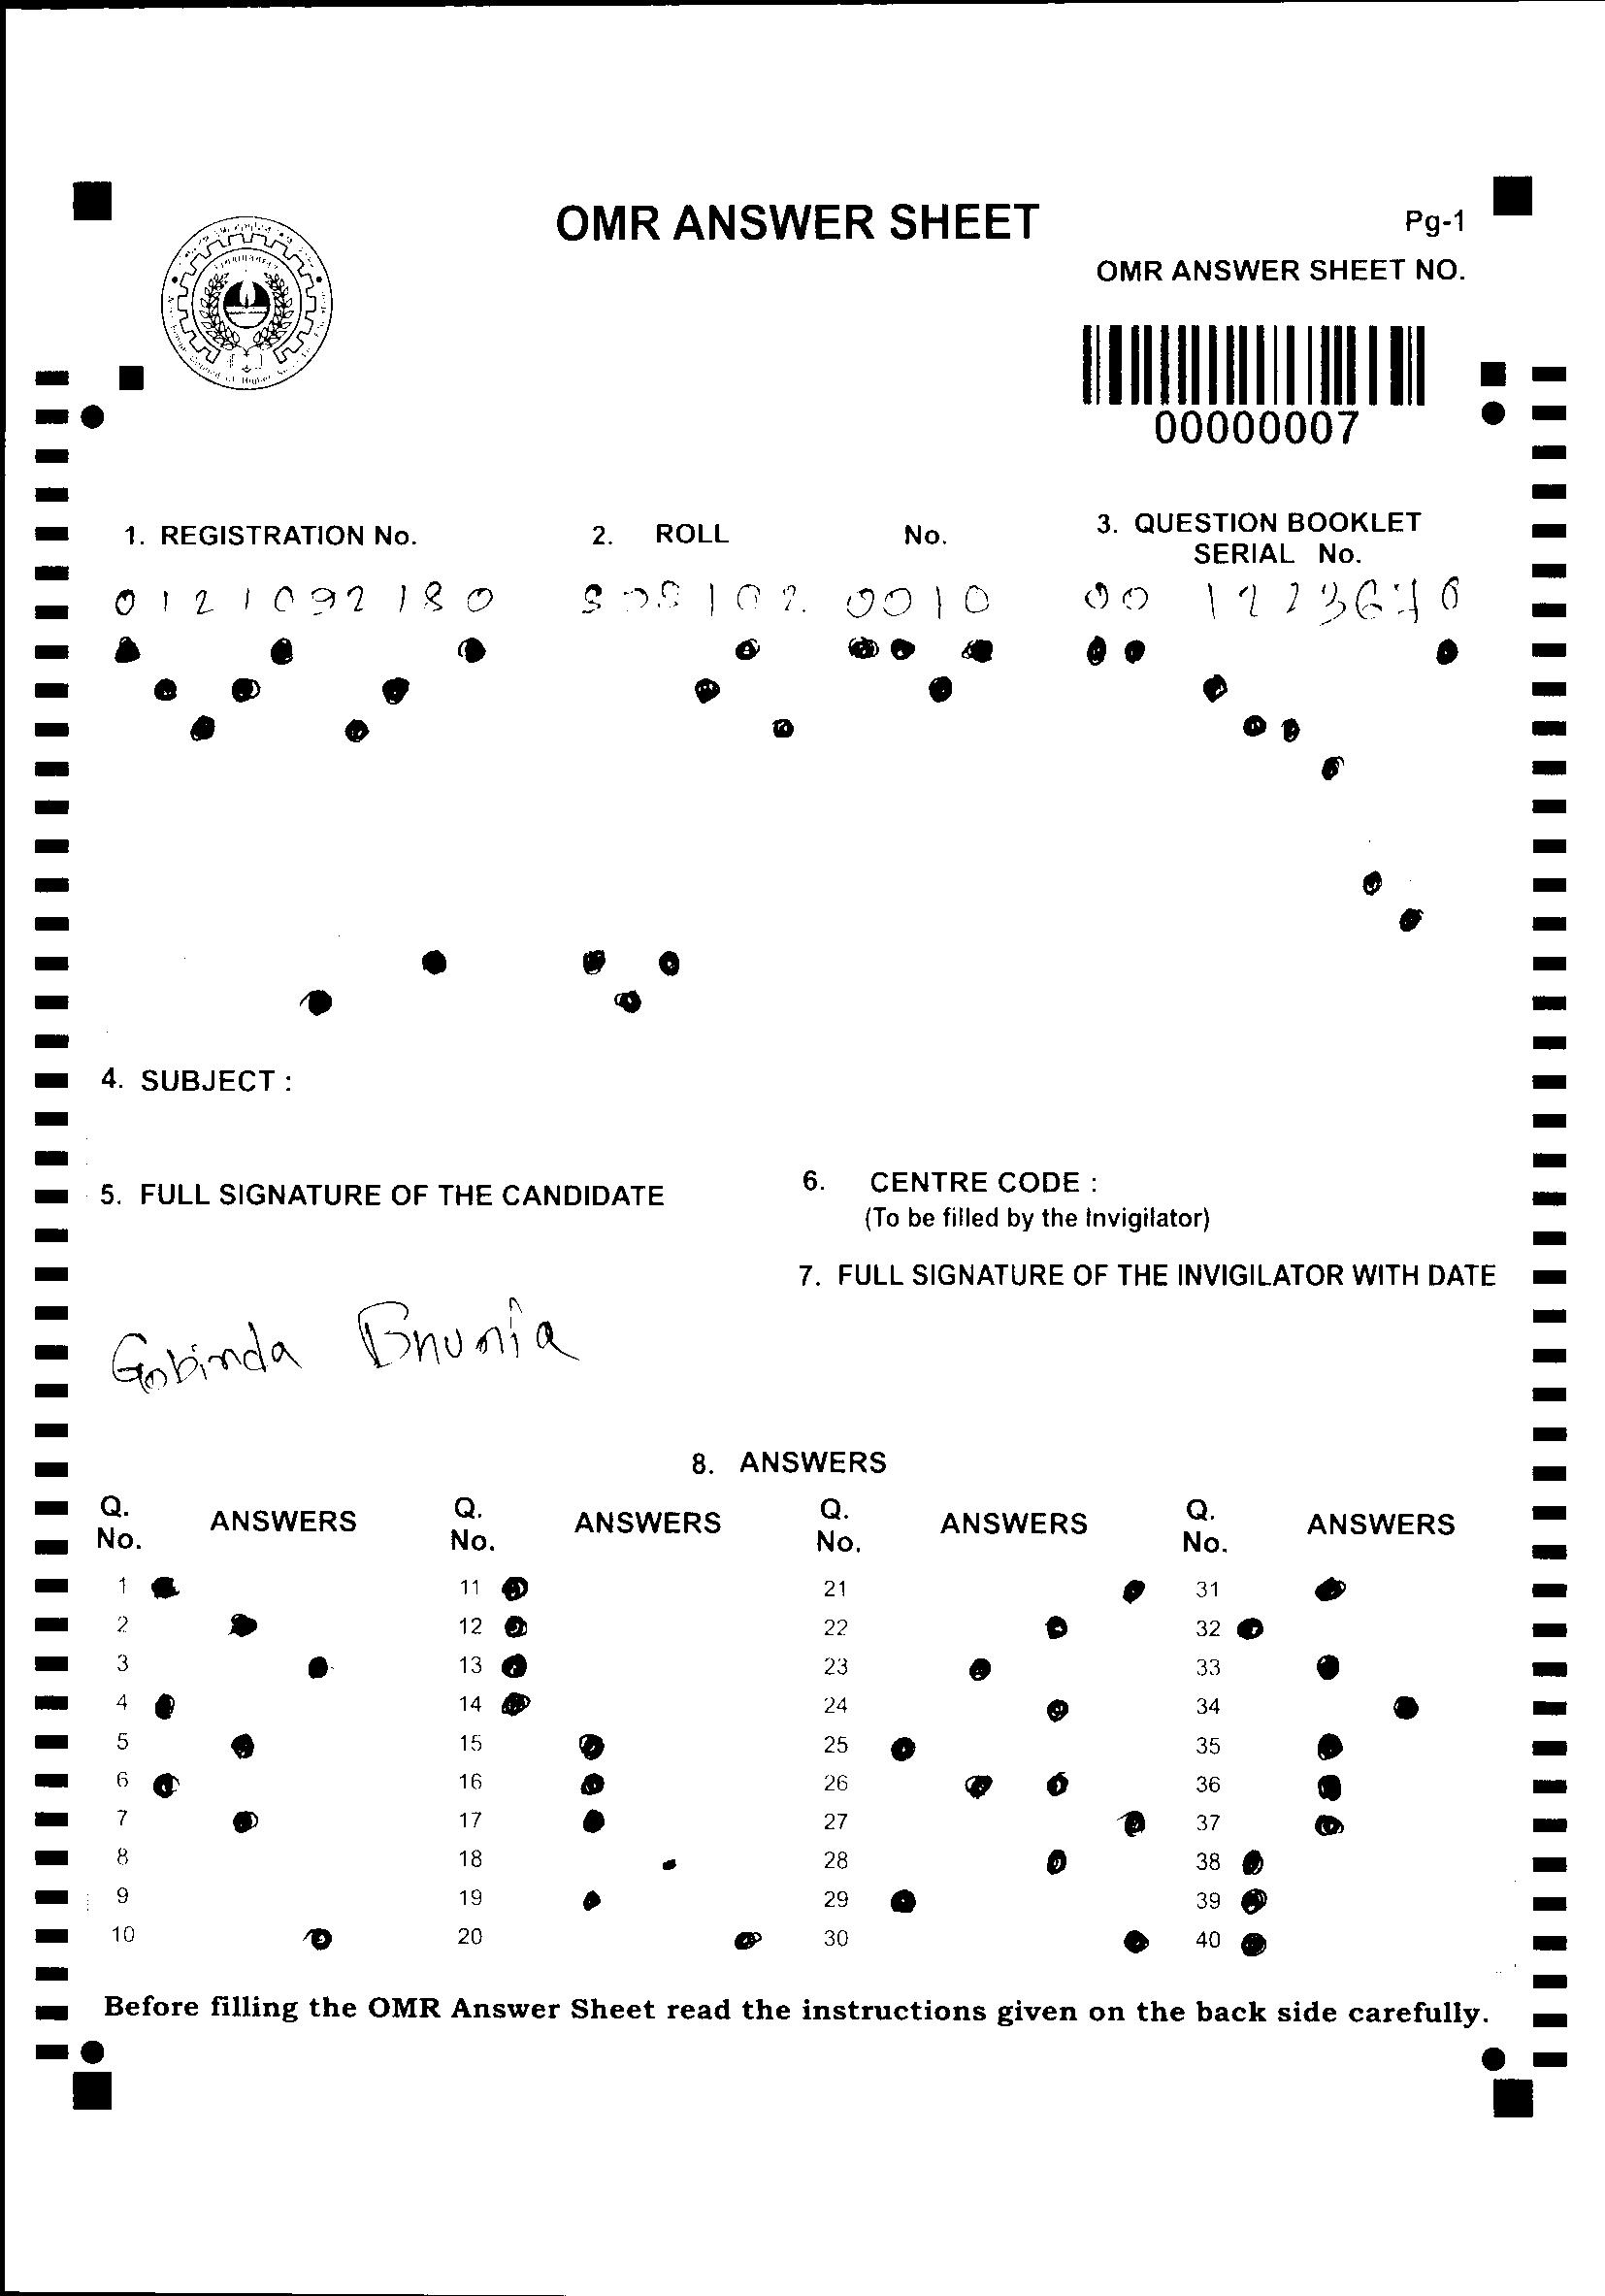 OMR ANSWER SHEET
Pg-1
OMR ANSWER SHEET NO.
00000007
1. REGISTRATION No.
2. ROLL No.
3. QUESTION BOOKLET
SERIAL No.
0121092180
898102 0010
00 1223670
4. SUBJECT :
5. FULL SIGNATURE OF THE CANDIDATE
6. CENTRE CODE :
(To be filled by the Invigilator)
7. FULL SIGNATURE OF THE INVIGILATOR WITH DATE
Gobinda Bhunia
8. ANSWERS
Q. No. ANSWERS Q. No. ANSWERS Q. No. ANSWERS Q. No. ANSWERS
1 11 21 31
2 12 22 32
3 13 23 33
4 14 24 34
5 15 25 35
6 16 26 36
7 17 27 37
8 18 28 38
9 19 29 39
10 20 30 40
Before filling the OMR Answer Sheet read the instructions given on the back side carefully.